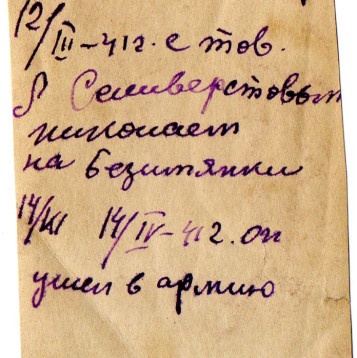 12/III-41г. с тов.
ЯСеливерстовым
николаем
на безимянки
14/VI 14/IV-41г. он
ушел в армию